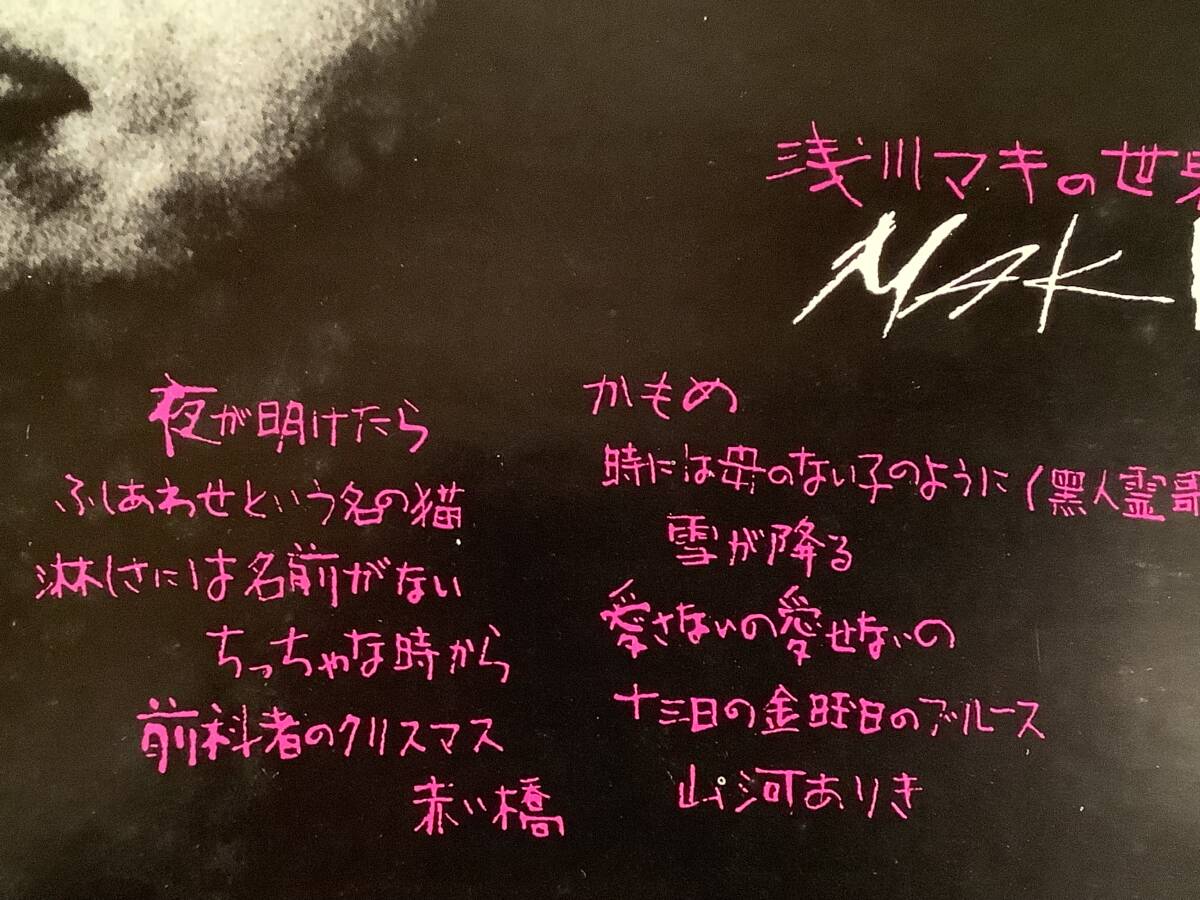 浅川マキの世界
MAK
夜が明けたら
ふしあわせという名の猫
淋しさには名前がない
ちっちゃな時から
前科者のクリスマス
赤い橋
かもめ
時には母のない子のように (黒人霊歌
雪が降る
愛さないの愛せないの
十三日の金曜日のブルース
山河ありき